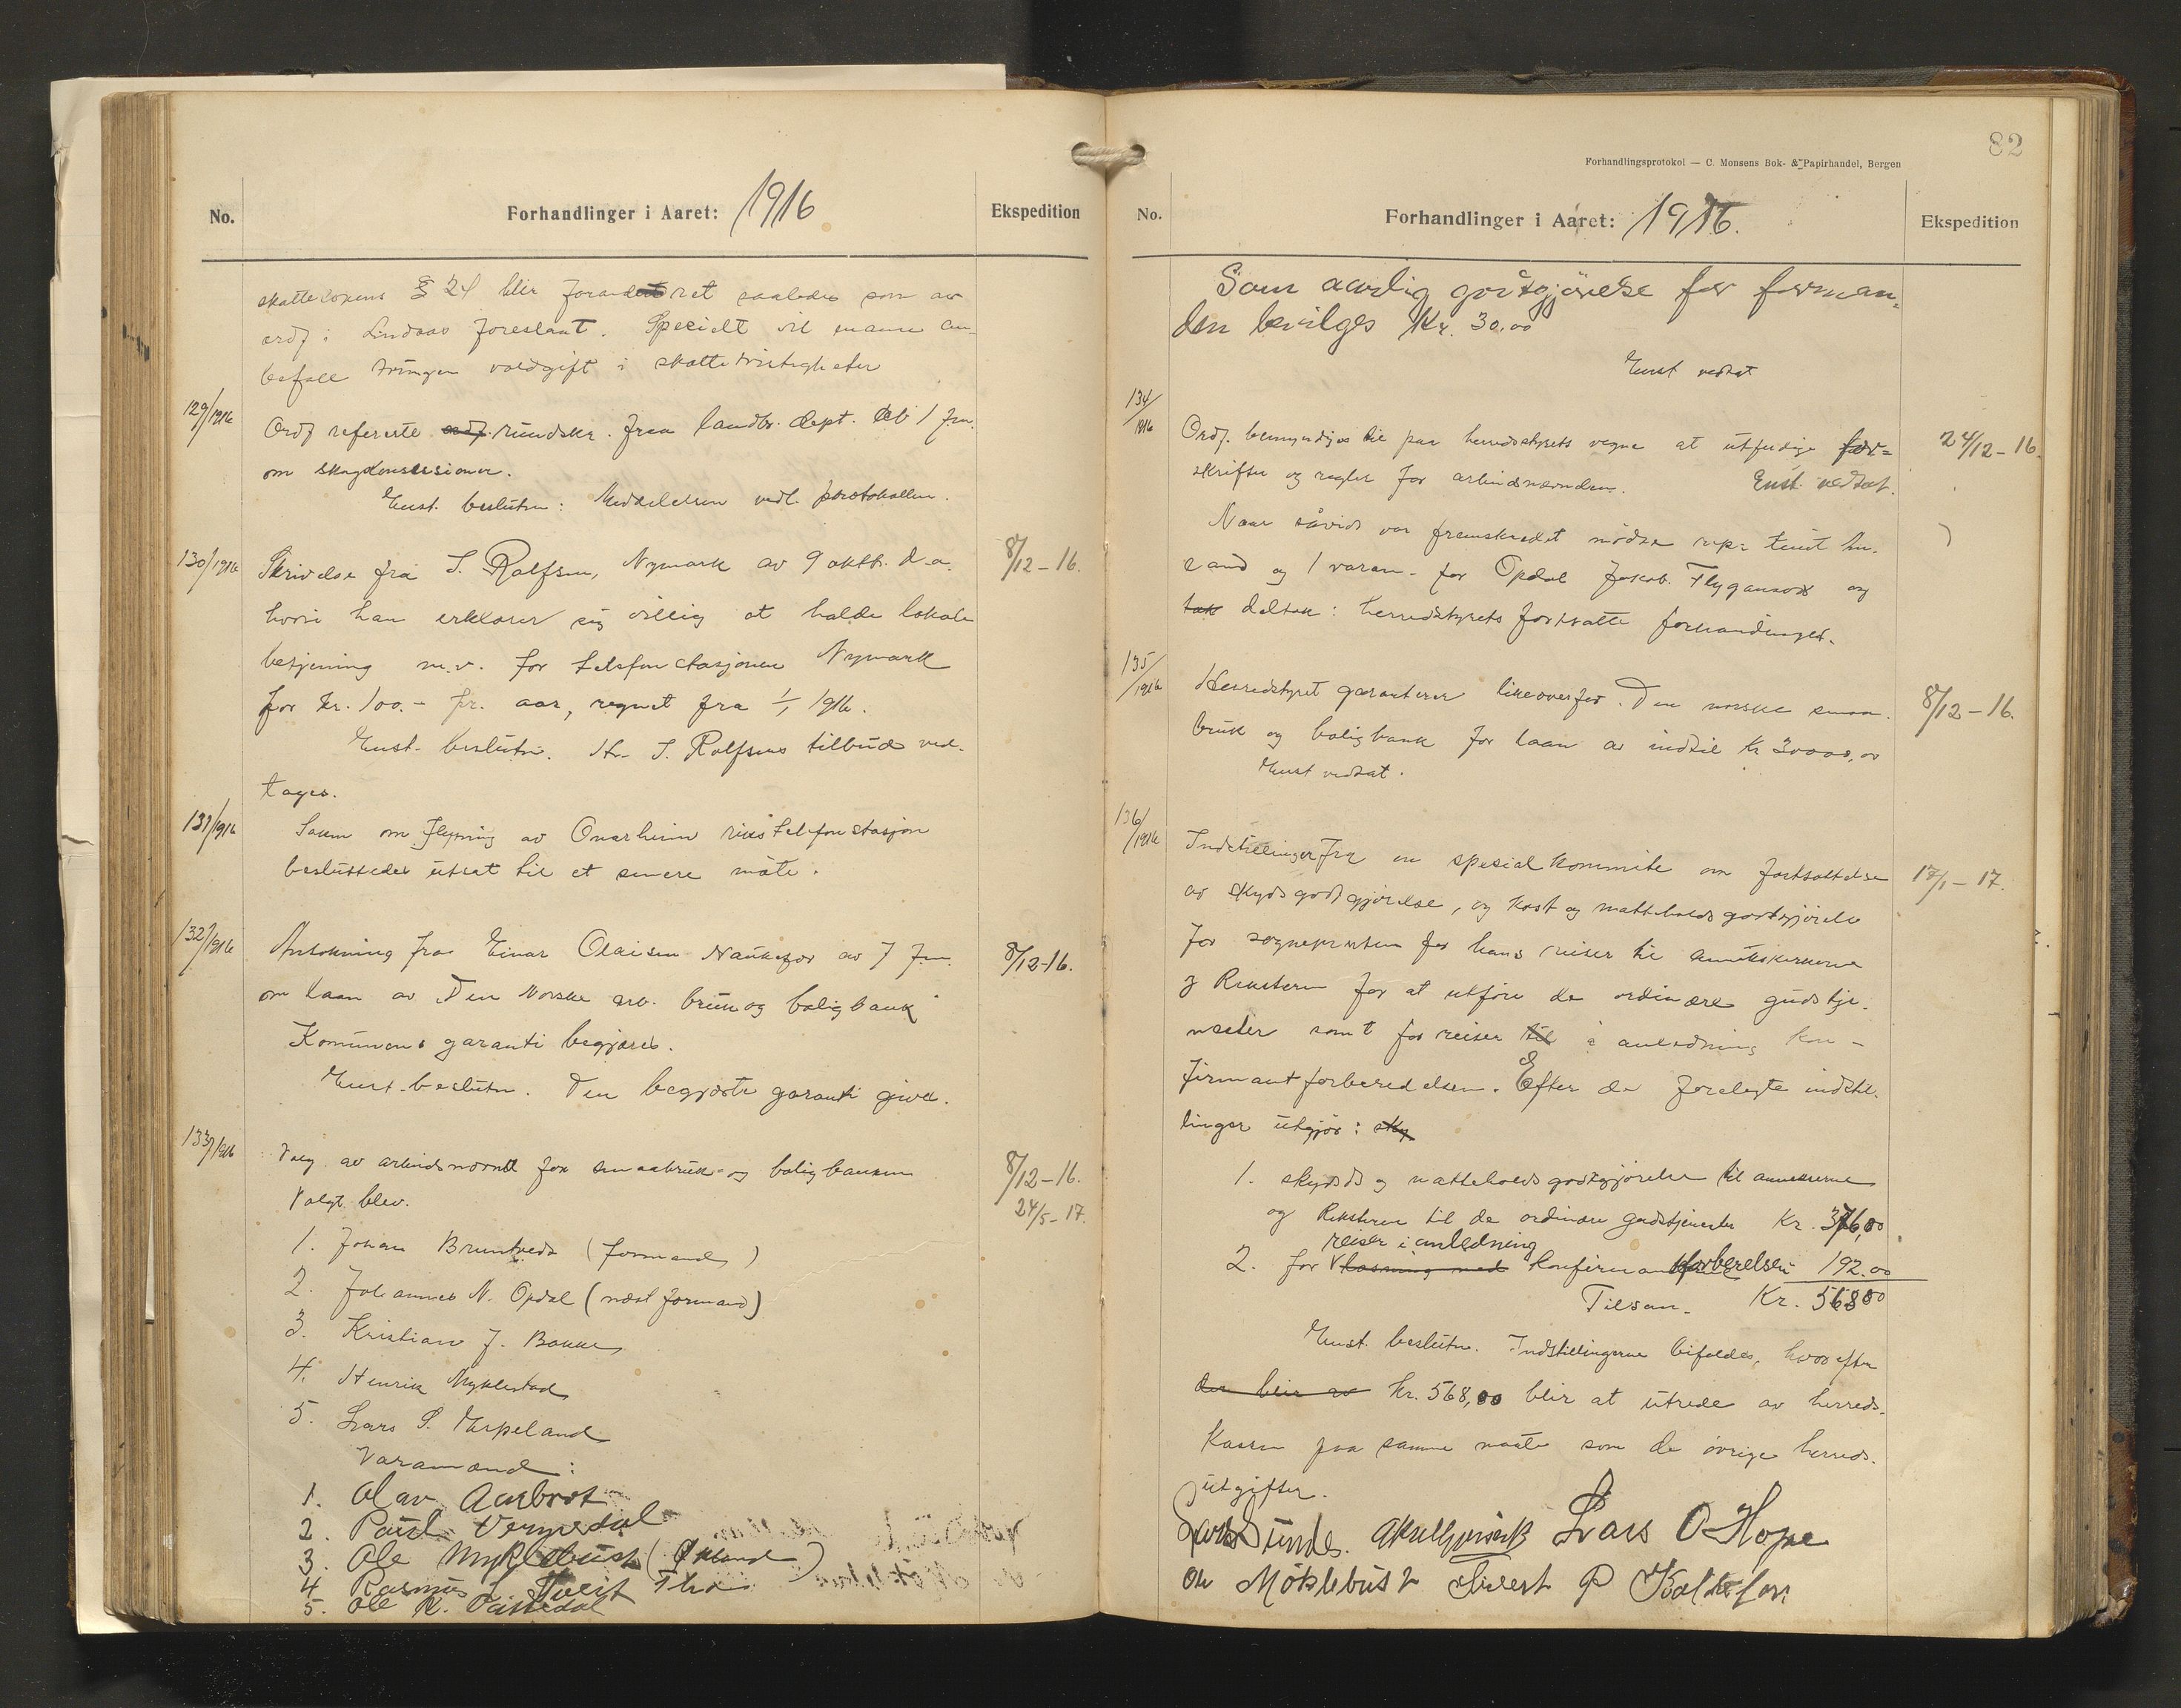 No.
Forhandlinger i Aaret: 1916
Ekspedition
skattelovens § 24 blir forandret saaledes som av
ordf i Lindaas foreslaat. Specielt vil man an-
befale tvungen voldgift i skattetvistigheter
129/1916
Ordf refererte ordf. rundskr. fra landbr. dept. av 1 fm.
om skogkonsesioner.
Enst. beslutn: Meddelelsen vedl. protokollen.
130/1916
Skrivelse fra S. Rolfsen, Nymark av 9 oktbr. d.a.
8/12-16.
hvori han erklærer sig villig at holde lokale
betjening m.v. for telefonstasjonen Nymark
for kr. 100.- pr. aar, regnet fra 1/1 1916.
Enst. beslutn. Hr. S. Rolfsens tilbud ved-
tages.
131/1916
Saken om flytning av Onarheim rikstelefonstasjon
besluttedes utsat til et senere møte.
132/1916
Ansøkning fra Einar Olaisen av 7 fm.
8/12-16.
om laan av Den Norske arb. bruk og boligbank
Komunens garanti begjæres.
Enst. beslutn. Den begjærte garanti gives.
133/1916
Valg av arbeidsnævnd for smaabruk- og boligbanken
8/12-16.
Valgt blev.
24/5-17.
1. Johan Bruntveda (formand)
2. Johannes N. Opdal (næst formand)
3. Kristian J. Bakke
4. Henrik Myklestad
5. Lars S. Erpeland
Varamænd:
1. Olav Aarbrot
2. Paul
3. Ole Myklebust (Økland)
4. Rasmus L. Tveit
5. Ole K.
82
Forhandlingsprotokol — C. Monsens Bok- & Papirhandel, Bergen
No.
Forhandlinger i Aaret: 1916.
Ekspedition
Som aarlig godtgjørelse for forman-
den bevilges Kr. 30.00
Enst vedtat
134/1916
Ordf. bemyndiges til paa herredstyrets vegne at utfærdige for-
24/12-16.
skrifter og regler for arbeidsnævnden. Enst. vedtat.
Naar såvidt var fremskredet mødte repr
og 1 varam. for Opdal Jakob Flygansvær og
tok deltok i herredstyrets fortsatte forhandinger.
135/1916
Herredstyret garanterer likeoverfor Den norske smaa-
8/12-16.
bruk og boligbank for laan av indtil kr 30000,00
Enst vedtat.
136/1916
Indstillinger fra en spesialkommite om fastsættelse
17/1-17.
av skydsgodtgjørelse, og kost og natteholdsgodtgjørelse
for sogneprsten for hans reiser til annekskirkerne
og Reksteren for at utføre de ordinære gudstje-
nester samt for reiser til i anledning kon-
firmantforberedelsen. Efter de forelagte indstil-
linger utgjør: sky
1. skyds og natteholdsgodtgjørelse til annekserne
og Reksteren til de ordinære gudstjenester Kr. 376,00
reiser i anledning
2. for læsning med konfirmantforberelsen 192.00
Tilsam. Kr. 568 00
Enst. beslutn. Indstillingerne bifaldes, hvorefter
der blir av kr. 568,00 blir at utrede av herreds-
kassen paa samme maate som de øvrige herreds-
utgifter.
Lars O Hope
Ole Möklebust Sivert P